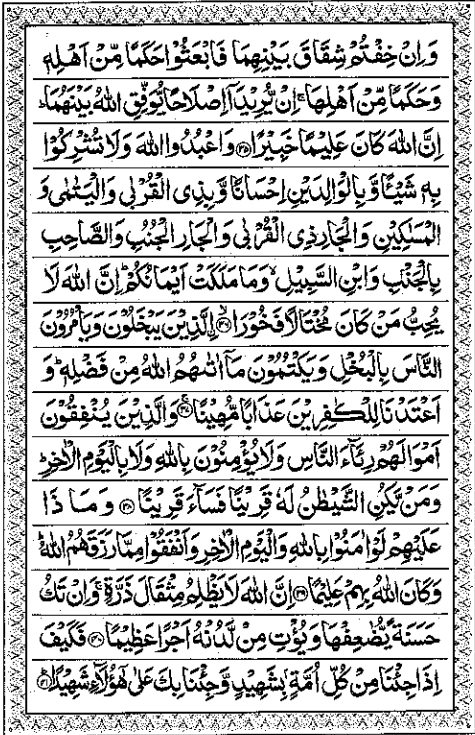 وَاِنْ خِفْتُمْ شِقَاقَ بَيْنِهِمَا فَابْعَثُوْا حَكَمًا مِّنْ اَهْلِهٖ
وَحَكَمًا مِّنْ اَهْلِهَا ۚ اِنْ يُّرِيْدَاۤ اِصْلَاحًا يُّوَفِّقِ اللّٰهُ بَيْنَهُمَا ؕ
اِنَّ اللّٰهَ كَانَ عَلِيْمًا خَبِيْرًا ﴿۳۵﴾ وَاعْبُدُوا اللّٰهَ وَلَا تُشْرِكُوْا
بِهٖ شَيْـًٔا وَّ بِالْوَالِدَيْنِ اِحْسَانًا وَّ بِذِى الْقُرْبٰى وَالْيَتٰمٰى وَ
الْمَسٰكِيْنِ وَالْجَارِ ذِى الْقُرْبٰى وَالْجَارِ الْجُنُبِ وَالصَّاحِبِ
بِالْجَنْۢبِ وَابْنِ السَّبِيْلِ ۙ وَمَا مَلَكَتْ اَيْمَانُكُمْ ؕ اِنَّ اللّٰهَ لَا
يُحِبُّ مَنْ كَانَ مُخْتَالًا فَخُوْرًا ﴿۳۶﴾ ۙ اۨلَّذِيْنَ يَبْخَلُوْنَ وَيَاْمُرُوْنَ
النَّاسَ بِالْبُخْلِ وَيَكْتُمُوْنَ مَاۤ اٰتٰٮهُمُ اللّٰهُ مِنْ فَضْلِهٖ ؕ وَ
اَعْتَدْنَا لِلْكٰفِرِيْنَ عَذَابًا مُّهِيْنًا ﴿۳۷﴾ ۚ وَالَّذِيْنَ يُنْفِقُوْنَ
اَمْوَالَهُمْ رِئَآءَ النَّاسِ وَلَا يُؤْمِنُوْنَ بِاللّٰهِ وَلَا بِالْيَوْمِ الْاٰخِرِ ؕ
وَمَنْ يَّكُنِ الشَّيْطٰنُ لَهٗ قَرِيْنًا فَسَآءَ قَرِيْنًا ﴿۳۸﴾ وَمَاذَا
عَلَيْهِمْ لَوْ اٰمَنُوْا بِاللّٰهِ وَالْيَوْمِ الْاٰخِرِ وَاَنْفَقُوْا مِمَّا رَزَقَهُمُ اللّٰهُ ؕ
وَكَانَ اللّٰهُ بِهِمْ عَلِيْمًا ﴿۳۹﴾ اِنَّ اللّٰهَ لَا يَظْلِمُ مِثْقَالَ ذَرَّةٍ ۚ وَاِنْ تَكُ
حَسَنَةً يُّضٰعِفْهَا وَيُؤْتِ مِنْ لَّدُنْهُ اَجْرًا عَظِيْمًا ﴿۴۰﴾ فَكَيْفَ
اِذَا جِئْنَا مِنْ كُلِّ اُمَّةٍۭ بِشَهِيْدٍ وَّجِئْنَا بِكَ عَلٰى هٰٓؤُلَآءِ شَهِيْدًا ؕ ﴿۴۱﴾